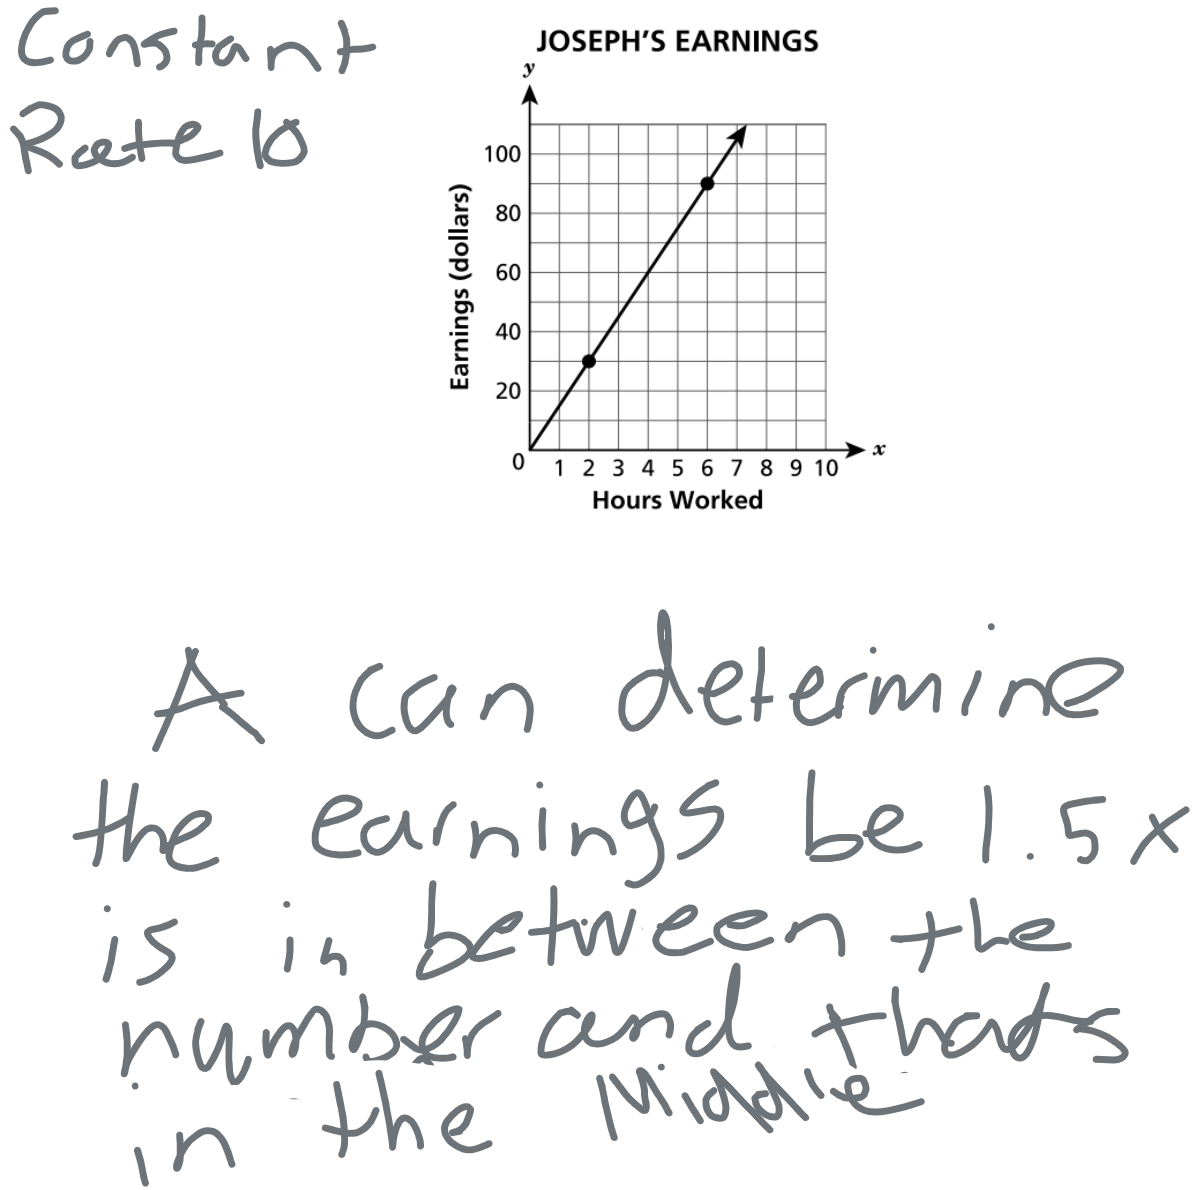 Constant
Rate 10
JOSEPH'S EARNINGS
y
100
80
60
40
20
0
Earnings (dollars)
1 2 3 4 5 6 7 8 9 10
x
Hours Worked
A can determine
the earnings be 1.5x
is in between the
number and thats
in the Middle